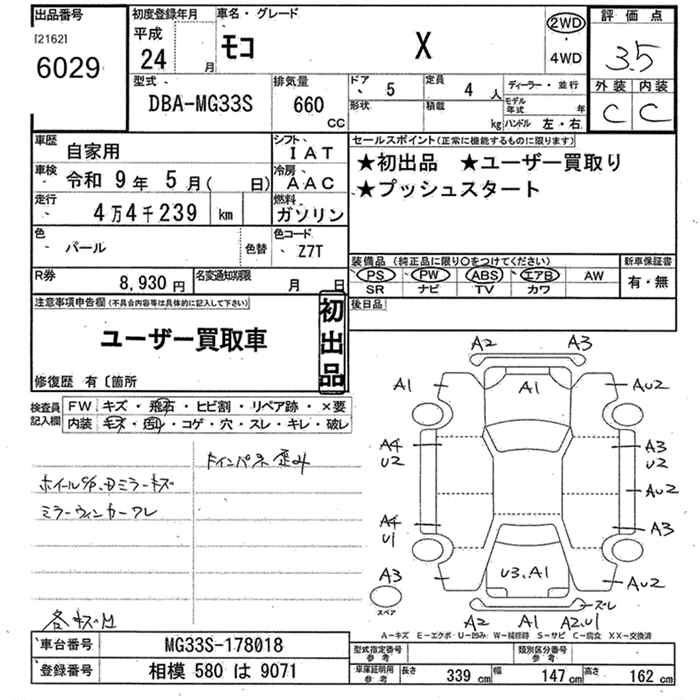 出品番号
[2162]
6029
初度登録年月
平成
24 月
車名・グレード
モコ X
2WD
・
4WD
評価点
3.5
外装 内装
C C
型式
DBA-MG33S
排気量
660
CC
ドア
5
定員
4 人
ディーラー・並行
形状
積載
kg
モデル年式 年
ハンドル 左・右
車歴
自家用
シフト
IAT
車検
令和 9年 5月( 日)
冷房
AAC
走行
4万4千239 km
燃料
ガソリン
色
パール
色替
色コード
Z7T
R券
8,930円
名変通知期限
月 日
セールスポイント(正常に機能するものに限ります)
★初出品 ★ユーザー買取り
★プッシュスタート
装備品(純正品に限り〇をつけてください)
PS PW ABS エアB AW
SR ナビ TV カワ
新車保証書
有・無
後日品
注意事項申告欄(不具合内容等は具体的に記入して下さい)
ユーザー買取車
初出品
修復歴 有〔箇所
検査員
記入欄
FW キズ・飛石・ヒビ割・リペア跡・×要
内装 キズ・凹・コゲ・穴・スレ・キレ・破レ
ミラーウィンカーワレ
A2 A3
A1 A1 AU2
A4 A3
U2 U2
AU2
A4 A3
U1
A3 U3.A1 AU2
スペア
スレ
A2 A1 A2.U1
A-キズ E-エクボ U-凹み W-補修跡 S-サビ C-腐食 XX-交換済
車台番号
MG33S-178018
登録番号
相模 580 は 9071
型式指定番号
参考
類別区分番号
参考
車庫証明用
参考
長さ 339 cm 幅 147 cm 高さ 162 cm